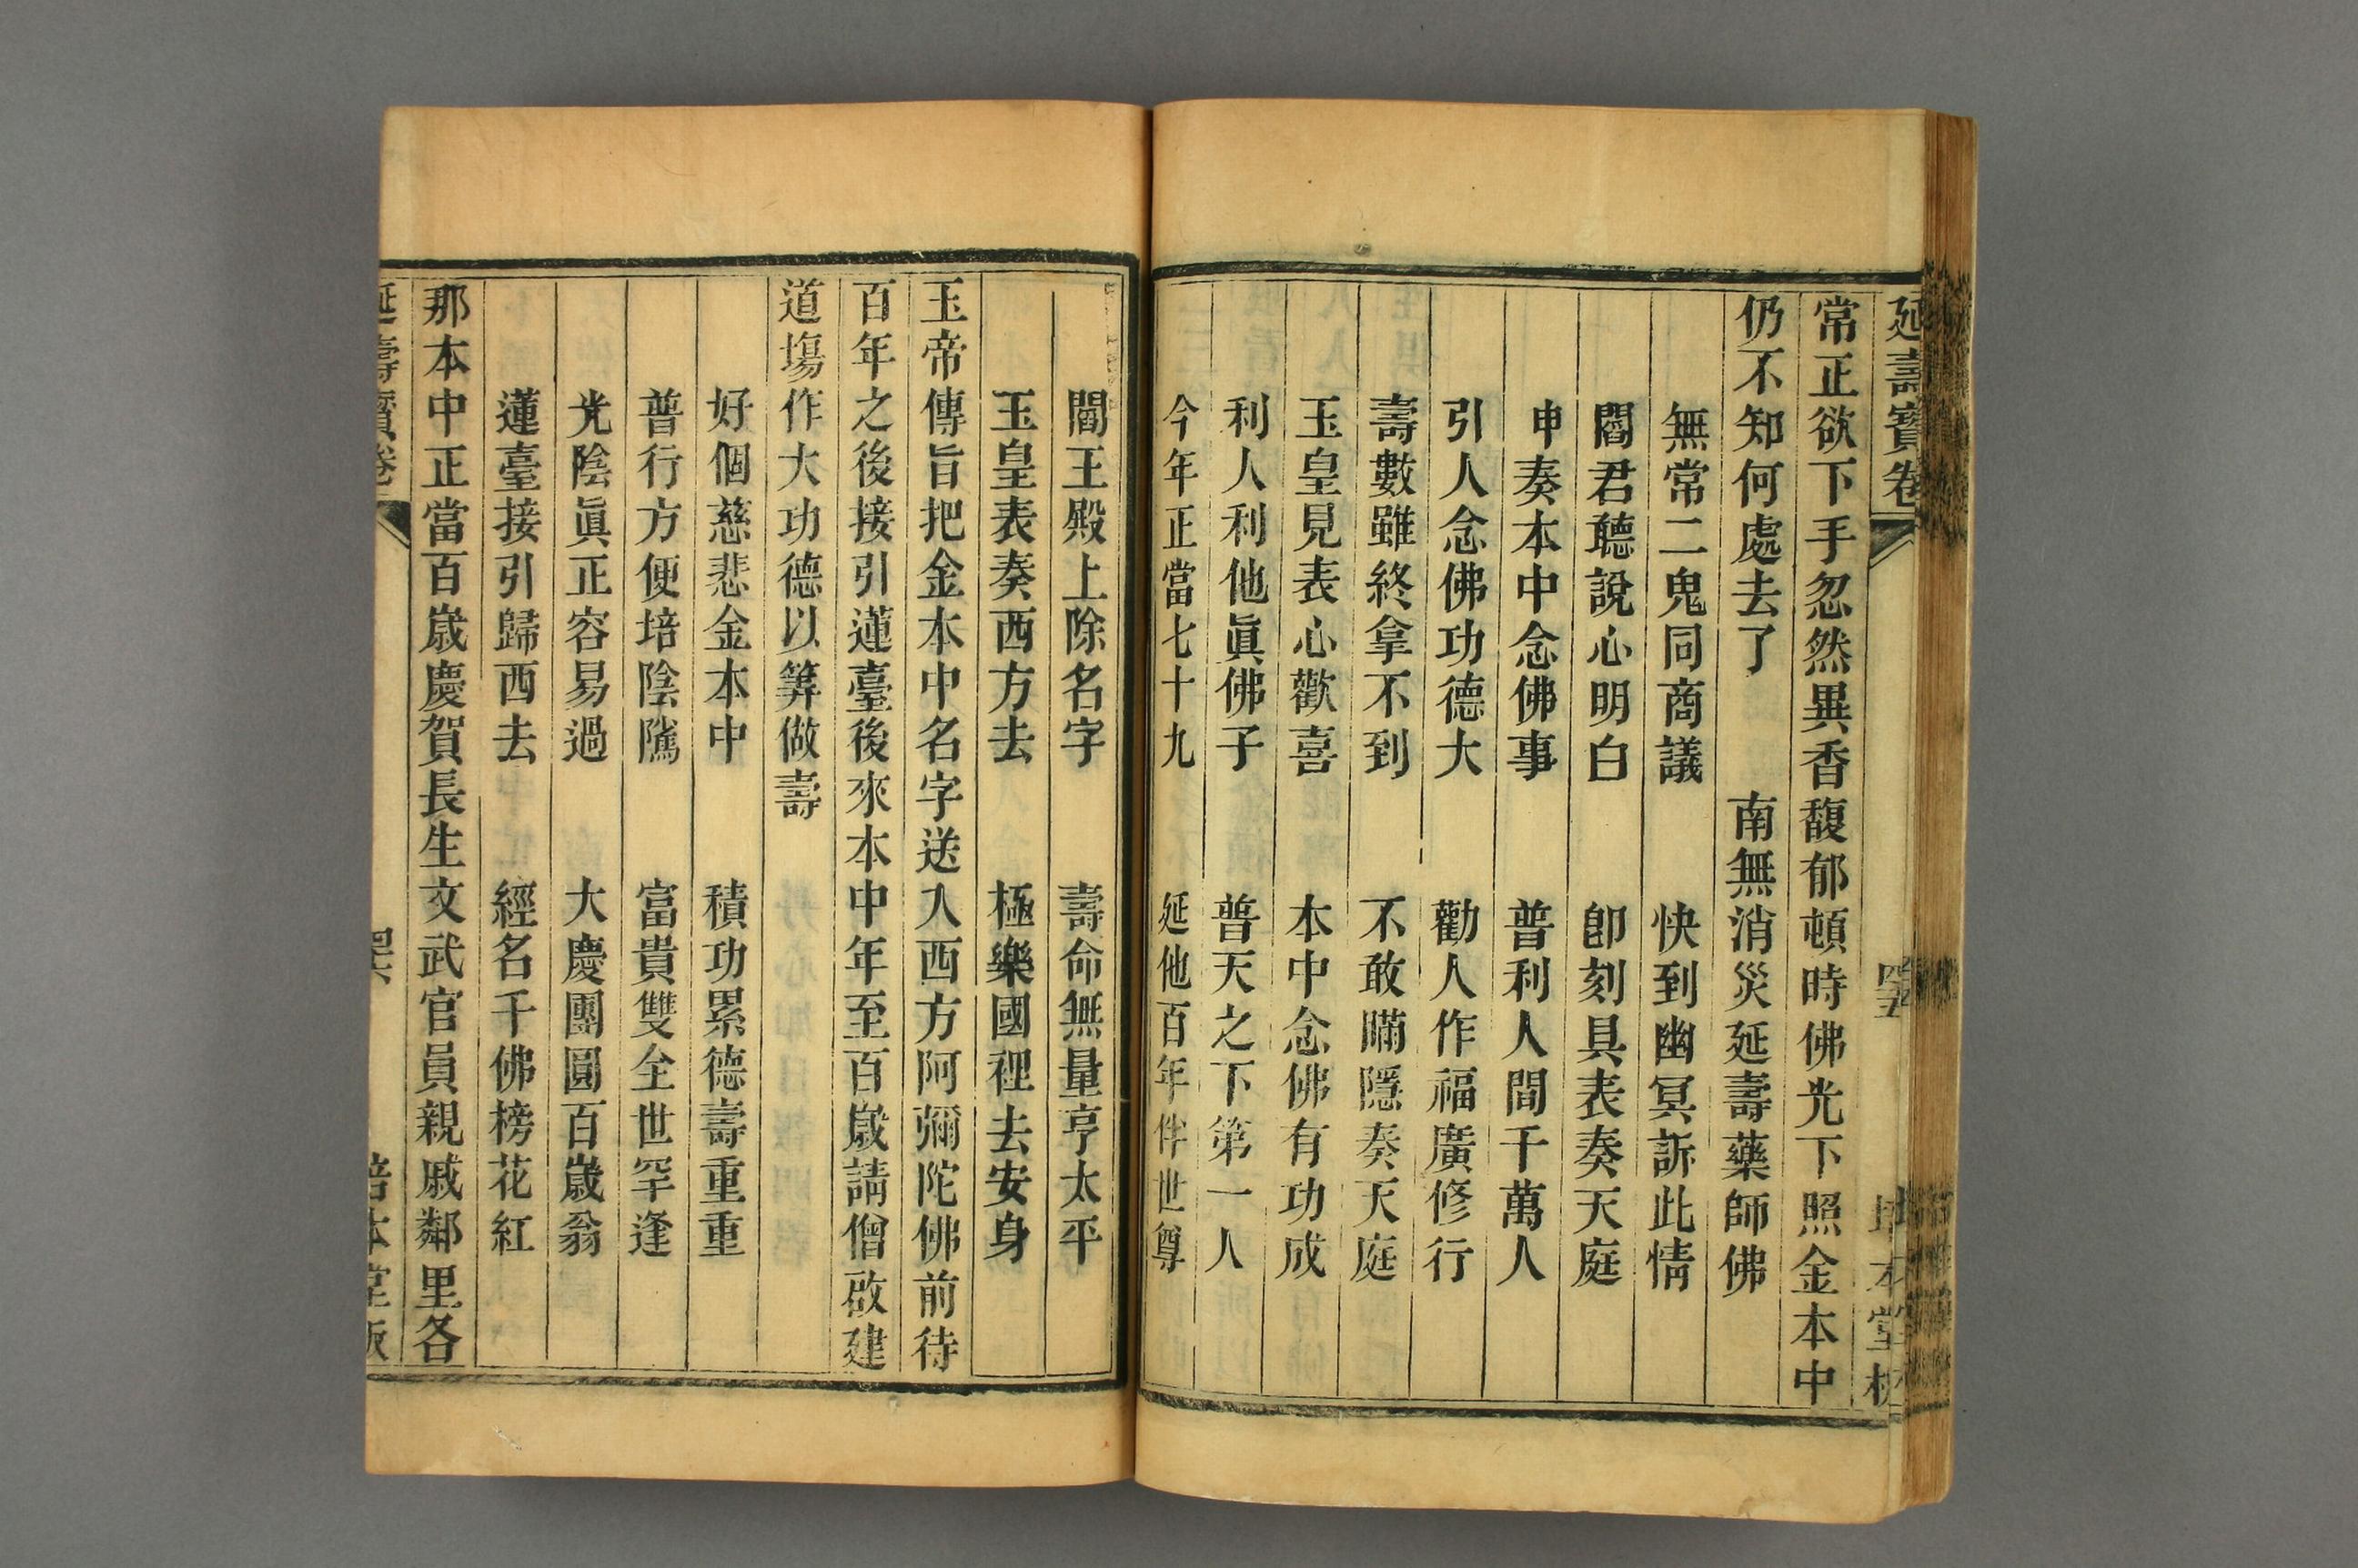 延壽寶卷
四五
本堂
常正欲下手忽然異香馥郁頓時佛光下照金本中
仍不知何處去了　南無消災延壽藥師佛
無常二鬼同商議　快到幽冥訴此情
閻君聽說心明白　卽刻具表奏天庭
申奏本中念佛事　普利人間千萬人
引人念佛功德大　勸人作福廣修行
壽數雖終拿不到　不敢瞞隱奏天庭
玉皇見表心歡喜　本中念佛有功成
利人利他眞佛子　普天之下第一人
今年正當七十九　延他百年伴世尊
閻王殿上除名字　壽命無量亨太平
玉皇表奏西方去　極樂國裡去安身
玉帝傳旨把金本中名字送入西方阿彌陀佛前待
百年之後接引蓮臺後來本中年至百歲請僧啟建
道塲作大功德以筭做壽
好個慈悲金本中　積功累德壽重重
普行方便培陰隲　富貴雙全世罕逢
光陰眞正容易過　大慶團圓百歲翁
蓮臺接引歸西去　經名千佛榜花紅
那本中正當百歲慶賀長生文武官員親戚鄰里各
延壽寶卷
四六
培本堂版